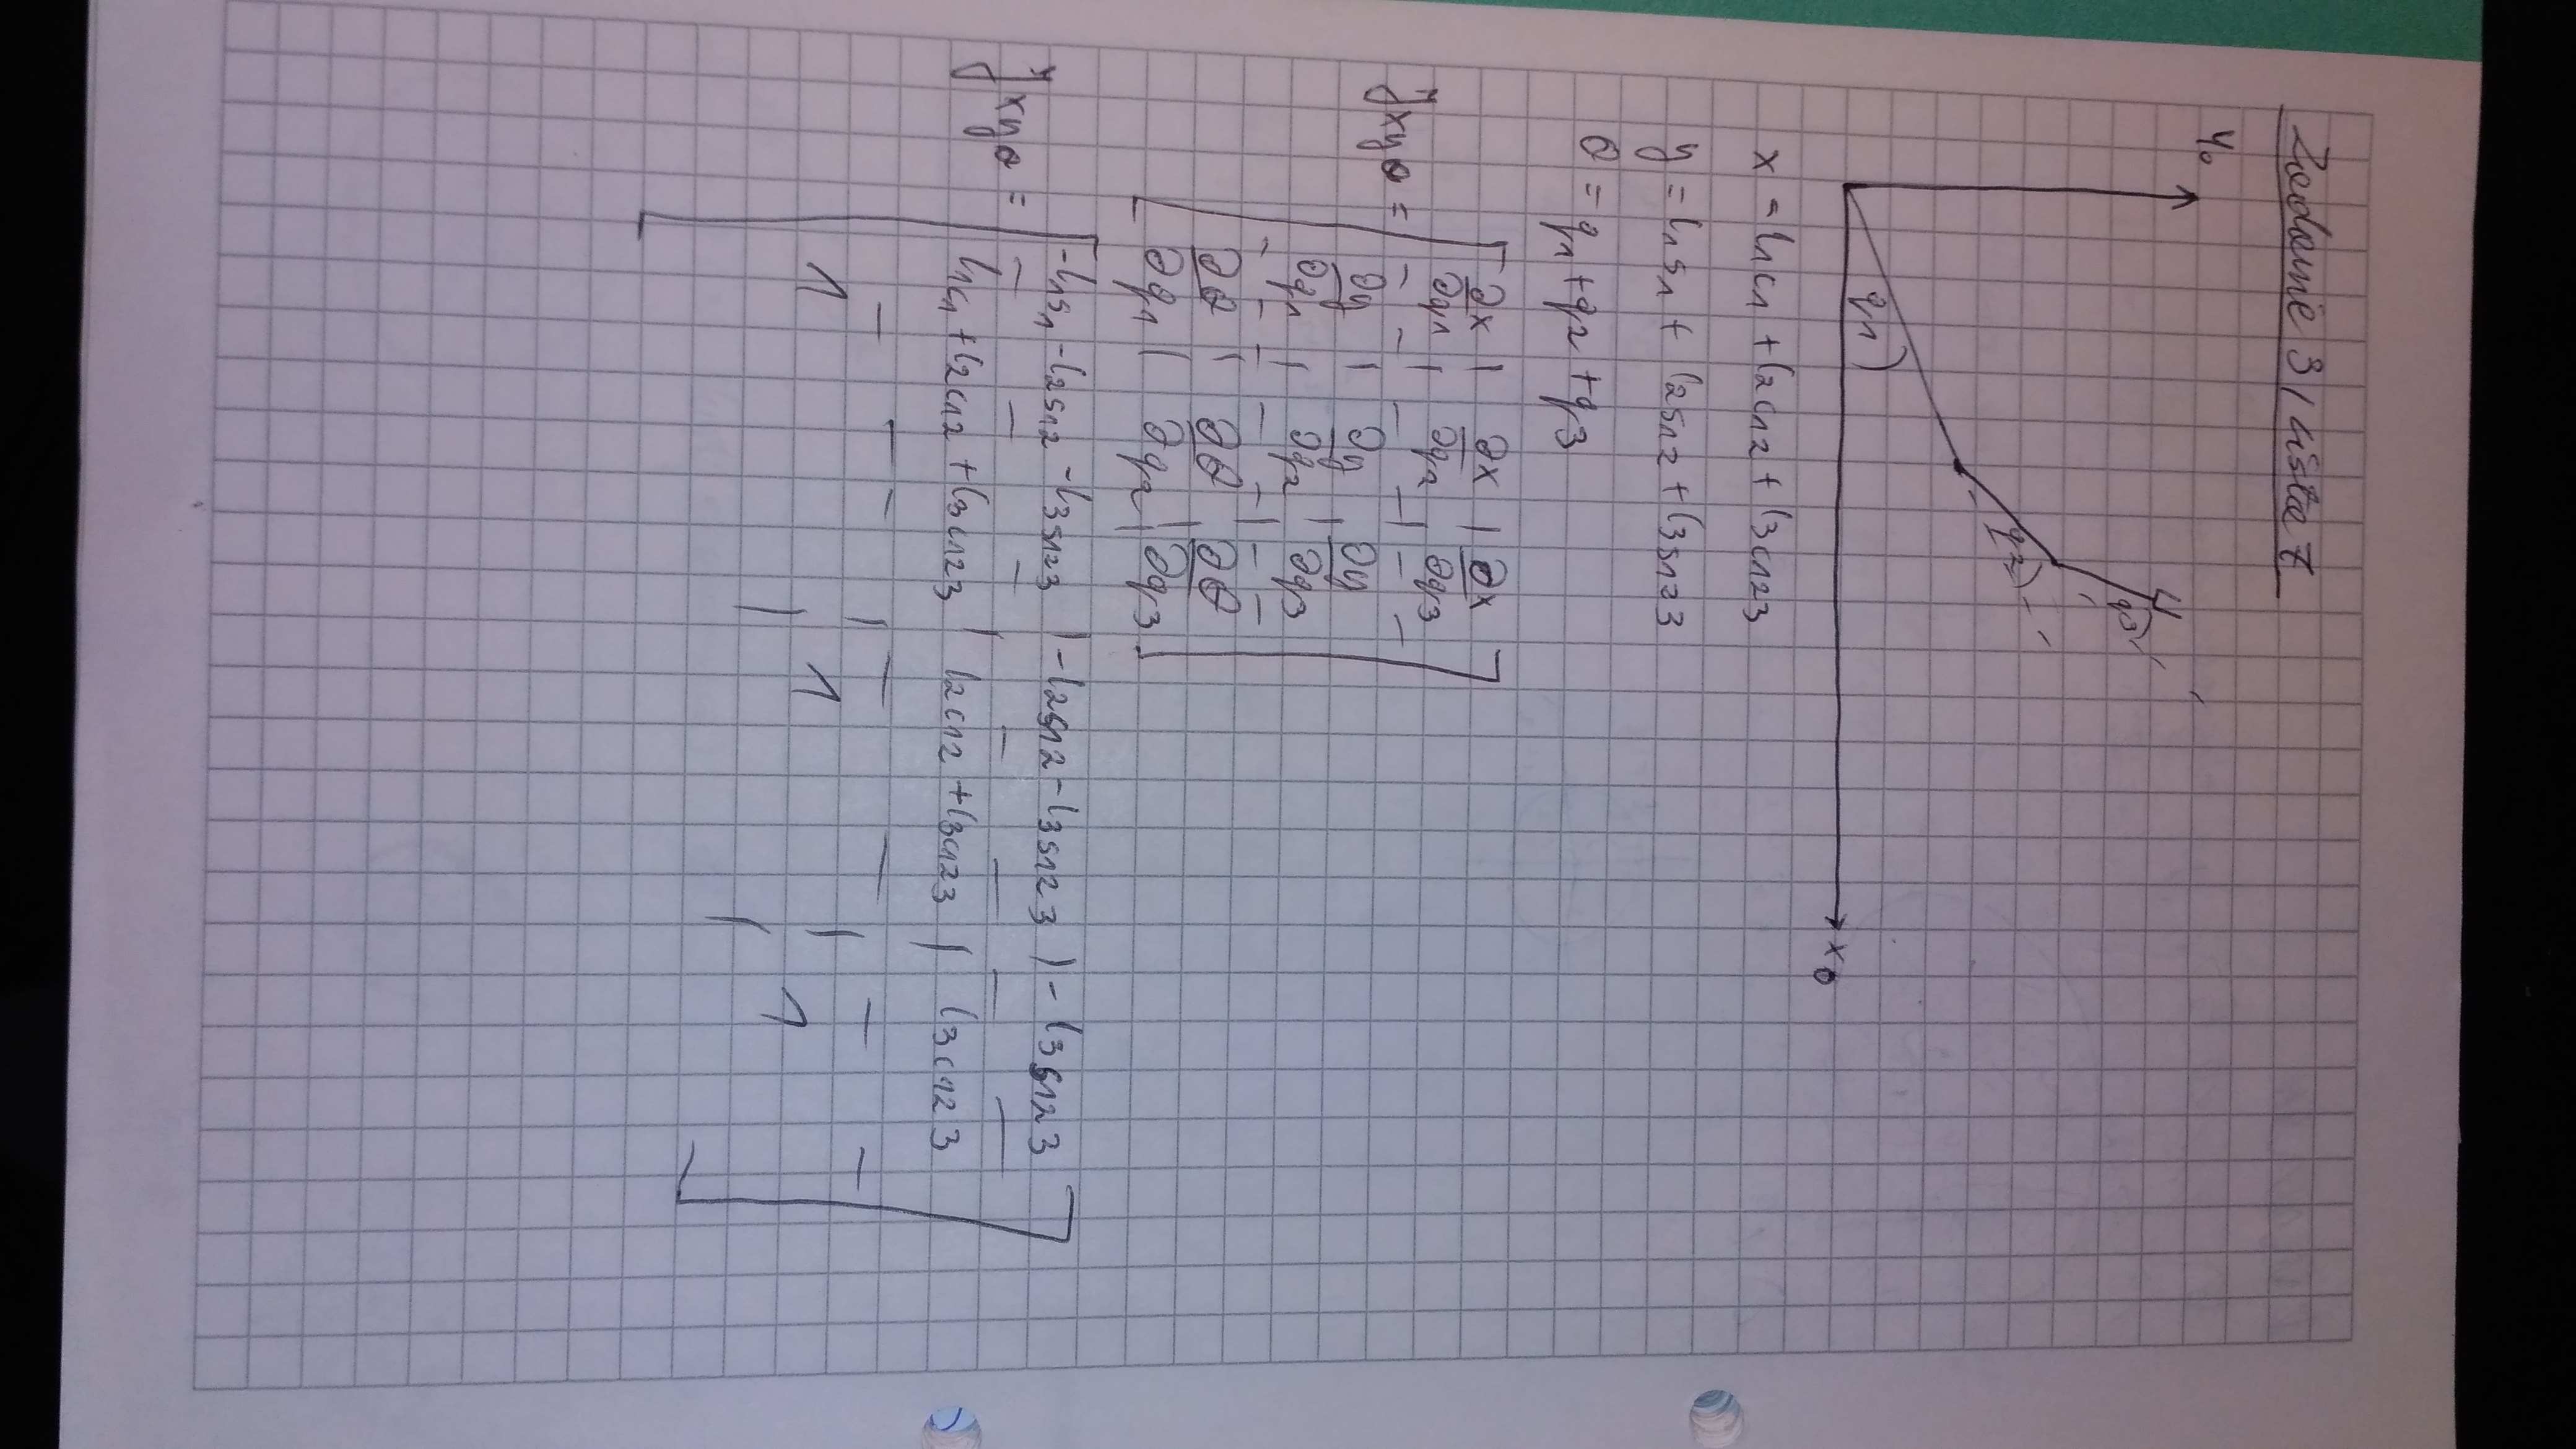 Zadanie 3, Lista 7
y₀
q3
q2
q1
x₀
x = l₁c₁ + l₂c₁₂ + l₃c₁₂₃
y = l₁s₁ + l₂s₁₂ + l₃s₁₂₃
θ = q₁ + q₂ + q₃
∂x | ∂x | ∂x
∂q₁ | ∂q₂ | ∂q₃
Jxyθ =
∂y | ∂y | ∂y
∂q₁ | ∂q₂ | ∂q₃
∂θ | ∂θ | ∂θ
∂q₁ | ∂q₂ | ∂q₃
-l₁s₁ -l₂s₁₂ -l₃s₁₂₃ | -l₂s₁₂ -l₃s₁₂₃ | -l₃s₁₂₃
Jxyθ =
l₁c₁ + l₂c₁₂ + l₃c₁₂₃ | l₂c₁₂ + l₃c₁₂₃ | l₃c₁₂₃
1 | 1 | 1